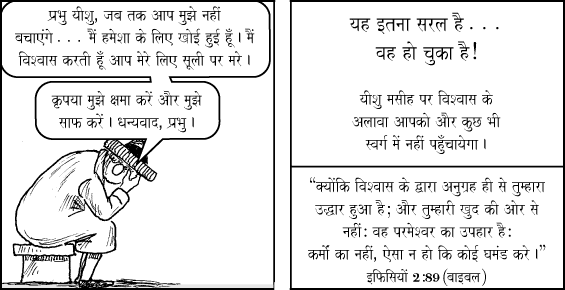 प्रभु यीशु, जब तक आप मुझे नहीं
बचाएंगे . . . मैं हमेशा के लिए खोई हुई हूँ । मैं
विश्वास करती हूँ आप मेरे लिए सूली पर मरे ।
कृपया मुझे क्षमा करें और मुझे
साफ करें । धन्यवाद, प्रभु ।
यह इतना सरल है . . .
वह हो चुका है!
यीशु मसीह पर विश्वास के
अलावा आपको और कुछ भी
स्वर्ग में नहीं पहुँचायेगा ।
“क्योंकि विश्वास के द्वारा अनुग्रह ही से तुम्हारा
उद्धार हुआ है; और तुम्हारी खुद की ओर से
नहीं: वह परमेश्वर का उपहार है:
कर्मों का नहीं, ऐसा न हो कि कोई घमंड करे ।”
इफिसियों 2:89 (बाइबल)